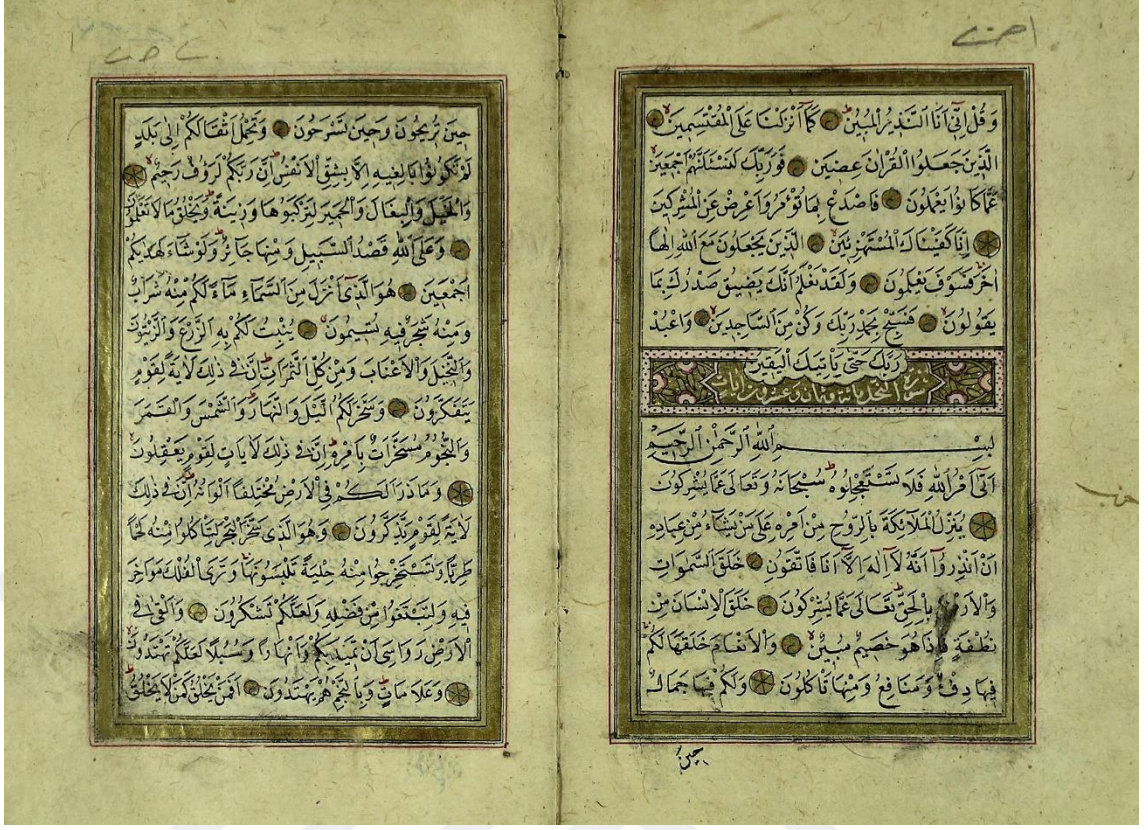 وَقُلْ اِنّٖٓي اَنَا النَّذٖيرُ الْمُبٖينُ كَمَٓا اَنْزَلْنَا عَلَى الْمُقْتَسِمٖينَ
الَّذٖينَ جَعَلُوا الْقُرْاٰنَ عِضٖينَ فَوَرَبِّكَ لَنَسْئَلَنَّهُمْ اَجْمَعٖينَ
عَمَّا كَانُوا يَعْمَلُونَ فَاصْدَعْ بِمَا تُؤْمَرُ وَاَعْرِضْ عَنِ الْمُشْرِكٖينَ
اِنَّا كَفَيْنَاكَ الْمُسْتَهْزِئٖينَ الَّذٖينَ يَجْعَلُونَ مَعَ اللّٰهِ اِلٰهاً
اٰخَرَ فَسَوْفَ يَعْلَمُونَ وَلَقَدْ نَعْلَمُ اَنَّكَ يَضٖيقُ صَدْرُكَ بِمَا
يَقُولُونَ فَسَبِّحْ بِحَمْدِ رَبِّكَ وَكُنْ مِنَ السَّاجِدٖينَ وَاعْبُدْ
رَبَّكَ حَتّٰى يَاْتِيَكَ الْيَقٖينُ
سورة النحل مائة وثمان وعشرون ايات
بِسْمِ اللّٰهِ الرَّحْمٰنِ الرَّحٖيمِ
اَتٰٓى اَمْرُ اللّٰهِ فَلَا تَسْتَعْجِلُوهُ سُبْحَانَهُ وَتَعَالٰى عَمَّا يُشْرِكُونَ
يُنَزِّلُ الْمَلٰٓائِكَةَ بِالرُّوحِ مِنْ اَمْرِهٖ عَلٰى مَنْ يَشَٓاءُ مِنْ عِبَادِهٖ
اَنْ اَنْذِرُٓوا اَنَّهُ لَٓا اِلٰهَ اِلَّٓا اَنَا فَاتَّقُونِ خَلَقَ السَّمٰوَاتِ
وَالْاَرْضَ بِالْحَقِّ تَعَالٰى عَمَّا يُشْرِكُونَ خَلَقَ الْاِنْسَانَ مِنْ
نُطْفَةٍ فَاِذَا هُوَ خَصٖيمٌ مُبٖينٌ وَالْاَنْعَامَ خَلَقَهَا لَكُمْ
فٖيهَا دِفْءٌ وَمَنَافِعُ وَمِنْهَا تَاْكُلُونَ وَلَكُمْ فٖيهَا جَمَالٌ
حٖينَ
حٖينَ تُرٖيحُونَ وَحٖينَ تَسْرَحُونَ وَتَحْمِلُ اَثْقَالَكُمْ اِلٰى بَلَدٍ
لَمْ تَكُونُوا بَالِغٖيهِ اِلَّا بِشِقِّ الْاَنْفُسِ اِنَّ رَبَّكُمْ لَرَؤُفٌ رَحٖيمٌ
وَالْخَيْلَ وَالْبِغَالَ وَالْحَمٖيرَ لِتَرْكَبُوهَا وَزٖينَةً وَيَخْلُقُ مَا لَا تَعْلَمُونَ
وَعَلَى اللّٰهِ قَصْدُ السَّبٖيلِ وَمِنْهَا جَٓائِرٌ وَلَوْ شَٓاءَ لَهَدٰيكُمْ
اَجْمَعٖينَ هُوَ الَّذٖٓي اَنْزَلَ مِنَ السَّمَٓاءِ مَٓاءً لَكُمْ مِنْهُ شَرَابٌ
وَمِنْهُ شَجَرٌ فٖيهِ تُسٖيمُونَ يُنْبِتُ لَكُمْ بِهِ الزَّرْعَ وَالزَّيْتُونَ
وَالنَّخٖيلَ وَالْاَعْنَابَ وَمِنْ كُلِّ الثَّمَرَاتِ اِنَّ فٖي ذٰلِكَ لَاٰيَةً لِقَوْمٍ
يَتَفَكَّرُونَ وَسَخَّرَ لَكُمُ الَّيْلَ وَالنَّهَارَ وَالشَّمْسَ وَالْقَمَرَ
وَالنُّجُومُ مُسَخَّرَاتٌ بِاَمْرِهٖ اِنَّ فٖي ذٰلِكَ لَاٰيَاتٍ لِقَوْمٍ يَعْقِلُونَ
وَمَا ذَرَاَ لَكُمْ فِي الْاَرْضِ مُخْتَلِفاً اَلْوَانُهُ اِنَّ فٖي ذٰلِكَ
لَاٰيَةً لِقَوْمٍ يَذَّكَّرُونَ وَهُوَ الَّذٖي سَخَّرَ الْبَحْرَ لِتَاْكُلُوا مِنْهُ لَحْماً
طَرِيًّا وَتَسْتَخْرِجُوا مِنْهُ حِلْيَةً تَلْبَسُونَهَا وَتَرَى الْفُلْكَ مَوَاخِرَ
فٖيهِ وَلِتَبْتَغُوا مِنْ فَضْلِهٖ وَلَعَلَّكُمْ تَشْكُرُونَ وَاَلْقٰى فِي
الْاَرْضِ رَوَاسِيَ اَنْ تَمٖيدَ بِكُمْ وَاَنْهَاراً وَسُبُلاً لَعَلَّكُمْ تَهْتَدُونَ
وَعَلَامَاتٍ وَبِالنَّجْمِ هُمْ يَهْتَدُونَ اَفَمَنْ يَخْلُقُ كَمَنْ لَا يَخْلُقُ